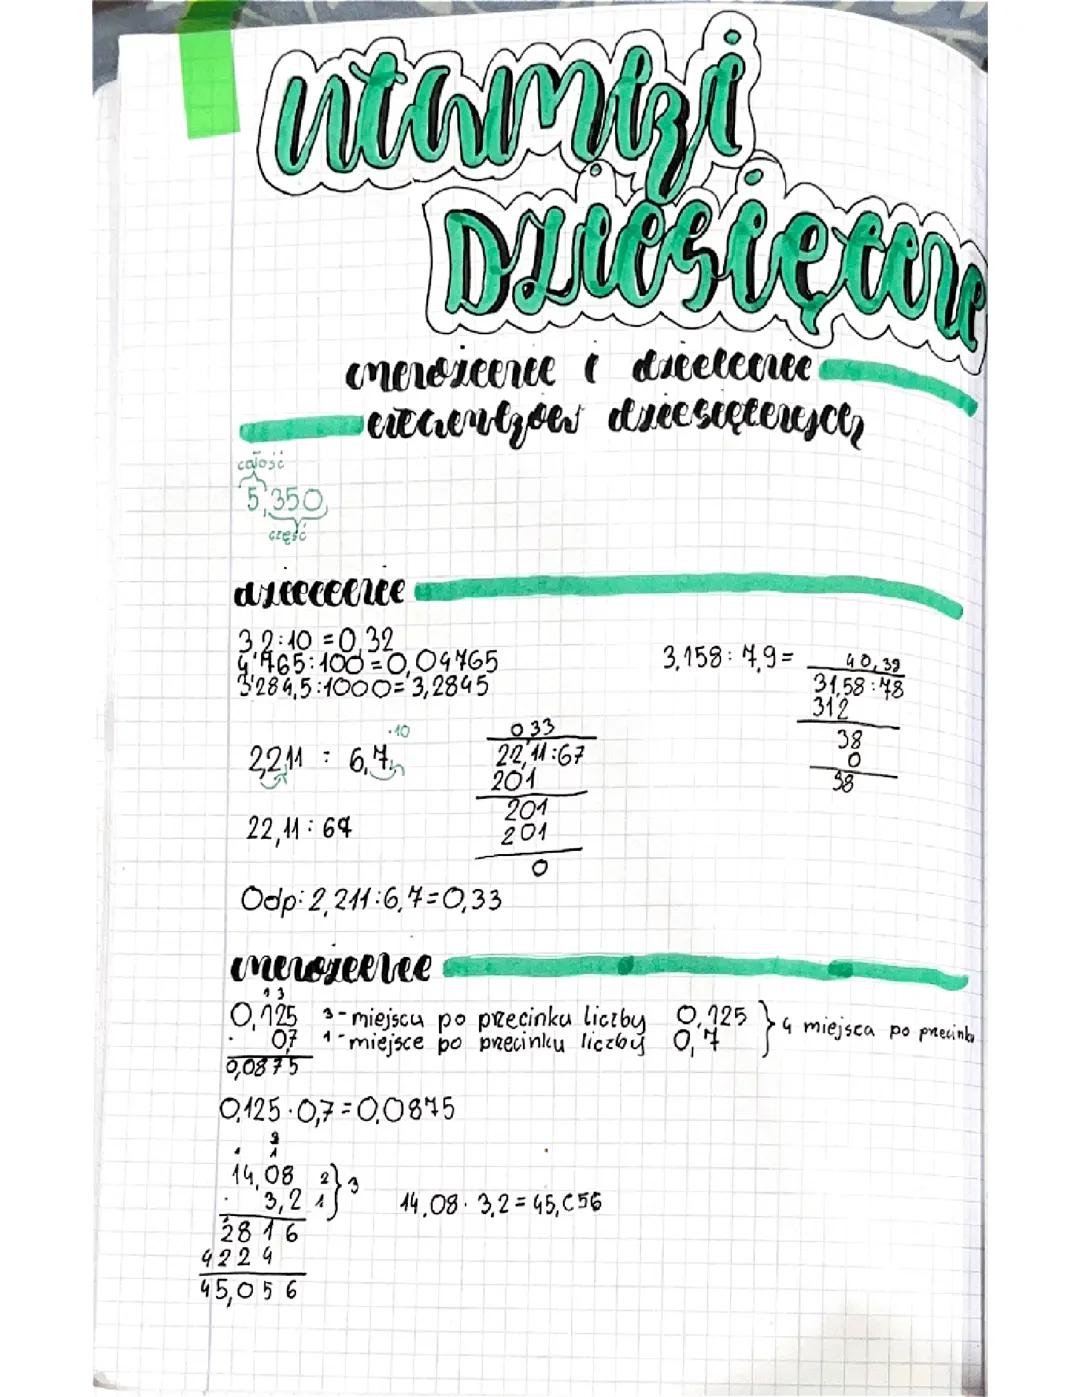 Ułamki
DZIESIĘTNE
mnożenie i dzielenie
ułamków dziesiętnych
całość
5,350
część
dzielenie
3,2:10=0,32
4765:100=0,04765
3284,5:1000=3,2845
3,158:7,9=
40,39
31,58:78
312
38
0
38
·10
2,211 : 6,7
22,11:67
0,33
22,11:67
201
201
201
0
Odp: 2,211:6,7=0,33
mnożenie
1 3
0,125 3-miejscu po przecinku liczby 0,125
· 0,7 1-miejsce po przecinku liczby 0,7
4 miejsca po przecinku
0,0875
0,125·0,7=0,0875
1 1
14,08 2
· 3,2 1
3
14,08·3,2=45,056
2816
4224
45,056